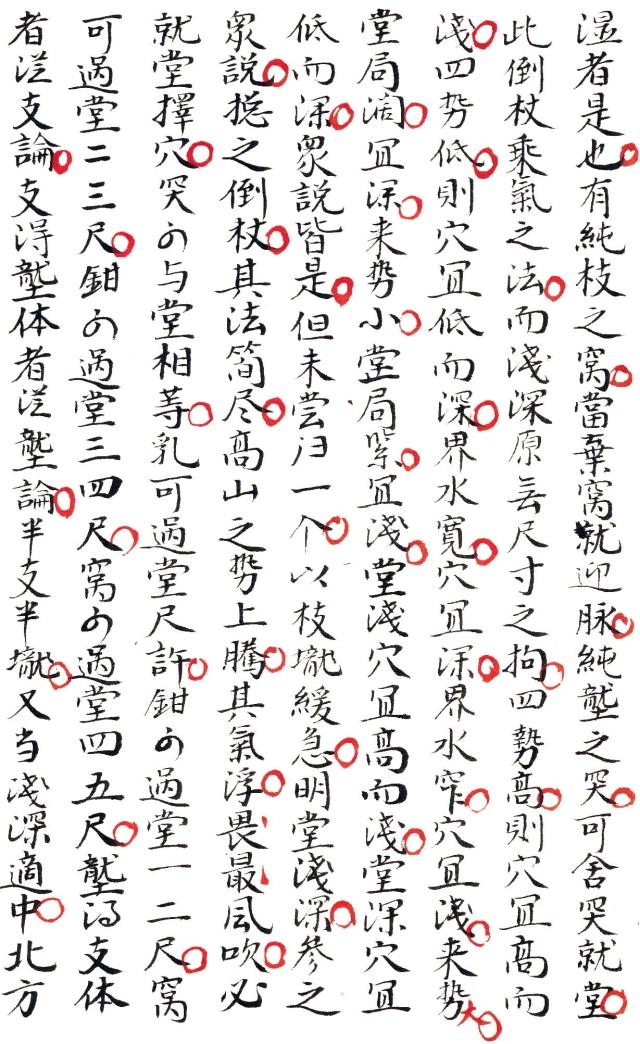 湿者是也有純枝之窝當棄窝就迎脉純壟之突可舍突就堂
此倒杖乘氣之法而淺深原无尺寸之拘四勢高則穴冝高而
淺四势低則穴冝低而深界水寬穴冝深界水窄穴冝淺来势大
堂局濶冝深来势小堂局緊冝淺堂淺穴冝高而淺堂深穴冝
低而深衆說皆是但未尝归一个以枝壠緩急明堂淺深參之
衆說揔之倒杖其法简尽高山之势上騰其氣浮畏最風吹必
就堂擇穴突可与堂相等乳可過堂尺許鉗可過堂一二尺窝
可過堂二三尺鉗可過堂三四尺窝可過堂四五尺壟得支体
者従支論支得壟体者従壟論半支半壠又当淺深適中北方